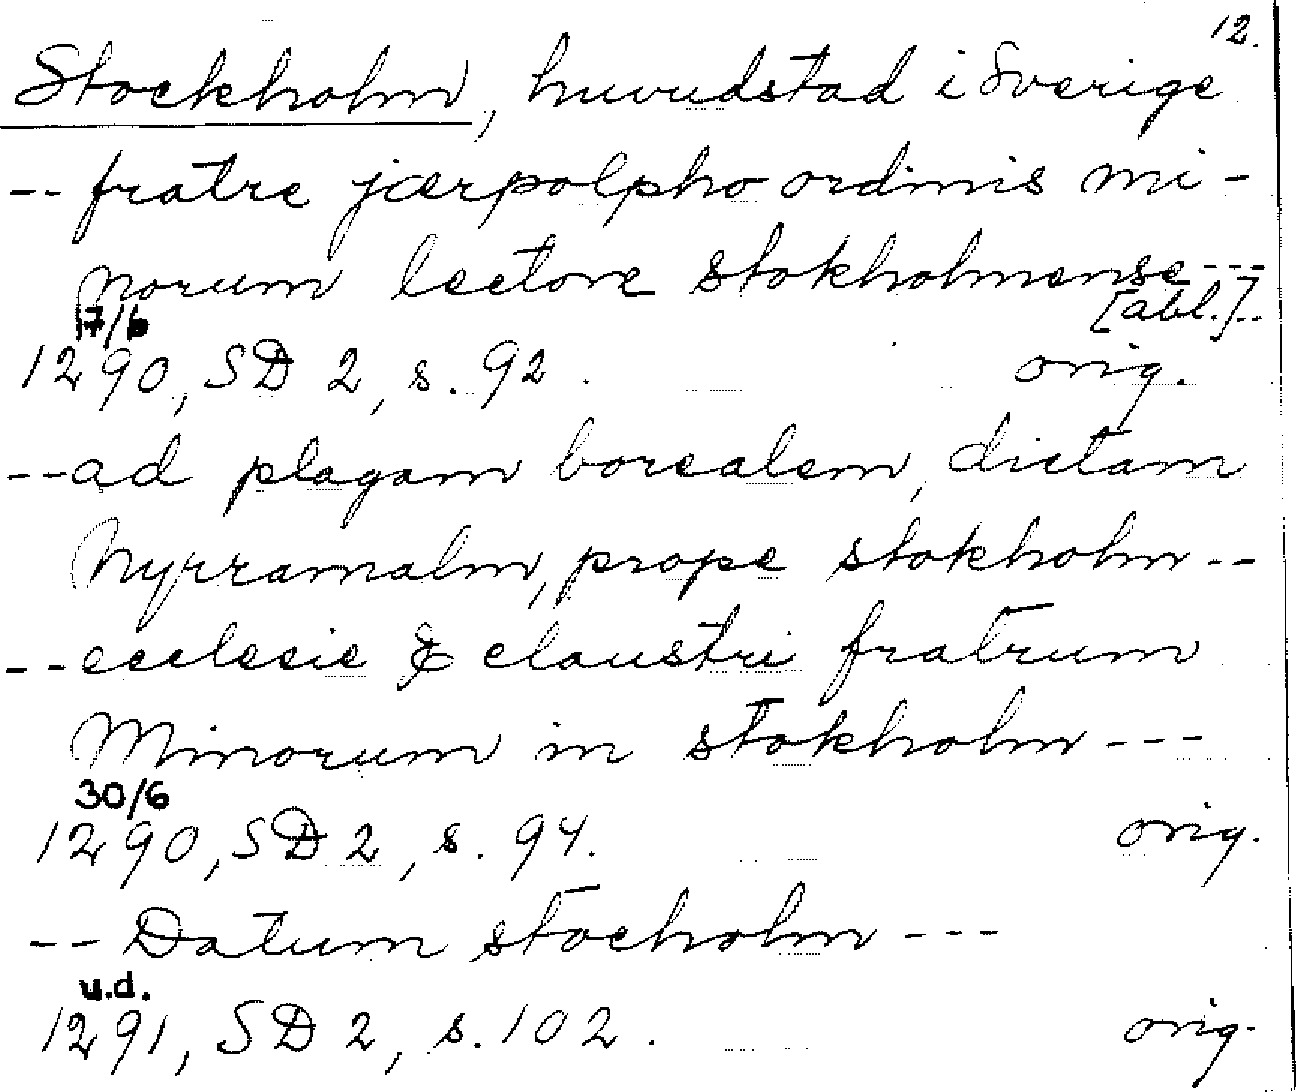 12.
Stockholm, huvudstad i Sverige
-- fratre jærpolpho ordinis mi-
norum lectore stokholmense ---
[abl.]--
17/6
1290, SD 2, s. 92. orig.
-- ad plagam borealem, dictam
Nyrramalm, prope stokholm --
-- ecclesie & claustri fratrum
Minorum in stokholm ---
30/6
1290, SD 2, s. 94. orig.
-- Datum stocholm ---
u.d.
1291, SD 2, s. 102. orig.